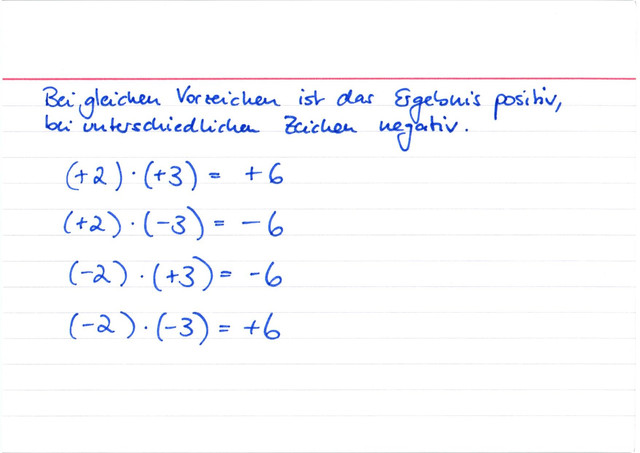 Bei gleichen Vorzeichen ist das Ergebnis positiv,
bei unterschiedlichen Zeichen negativ.
(+2) · (+3) = +6
(+2) · (-3) = -6
(-2) · (+3) = -6
(-2) · (-3) = +6